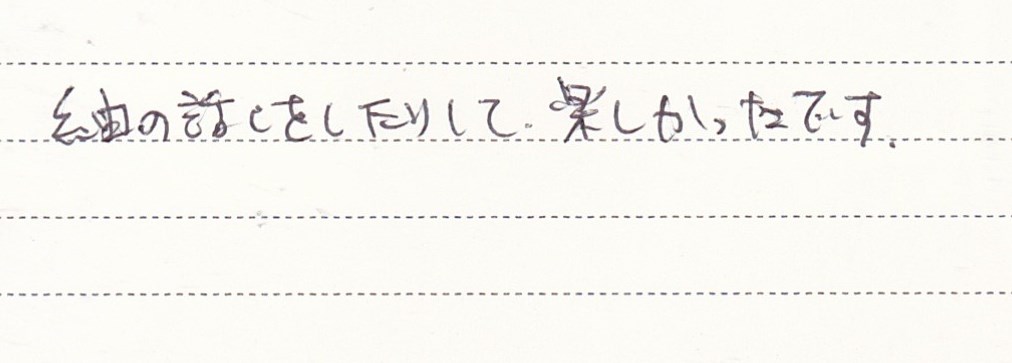 紬の話しをしたりして.楽しかったです.